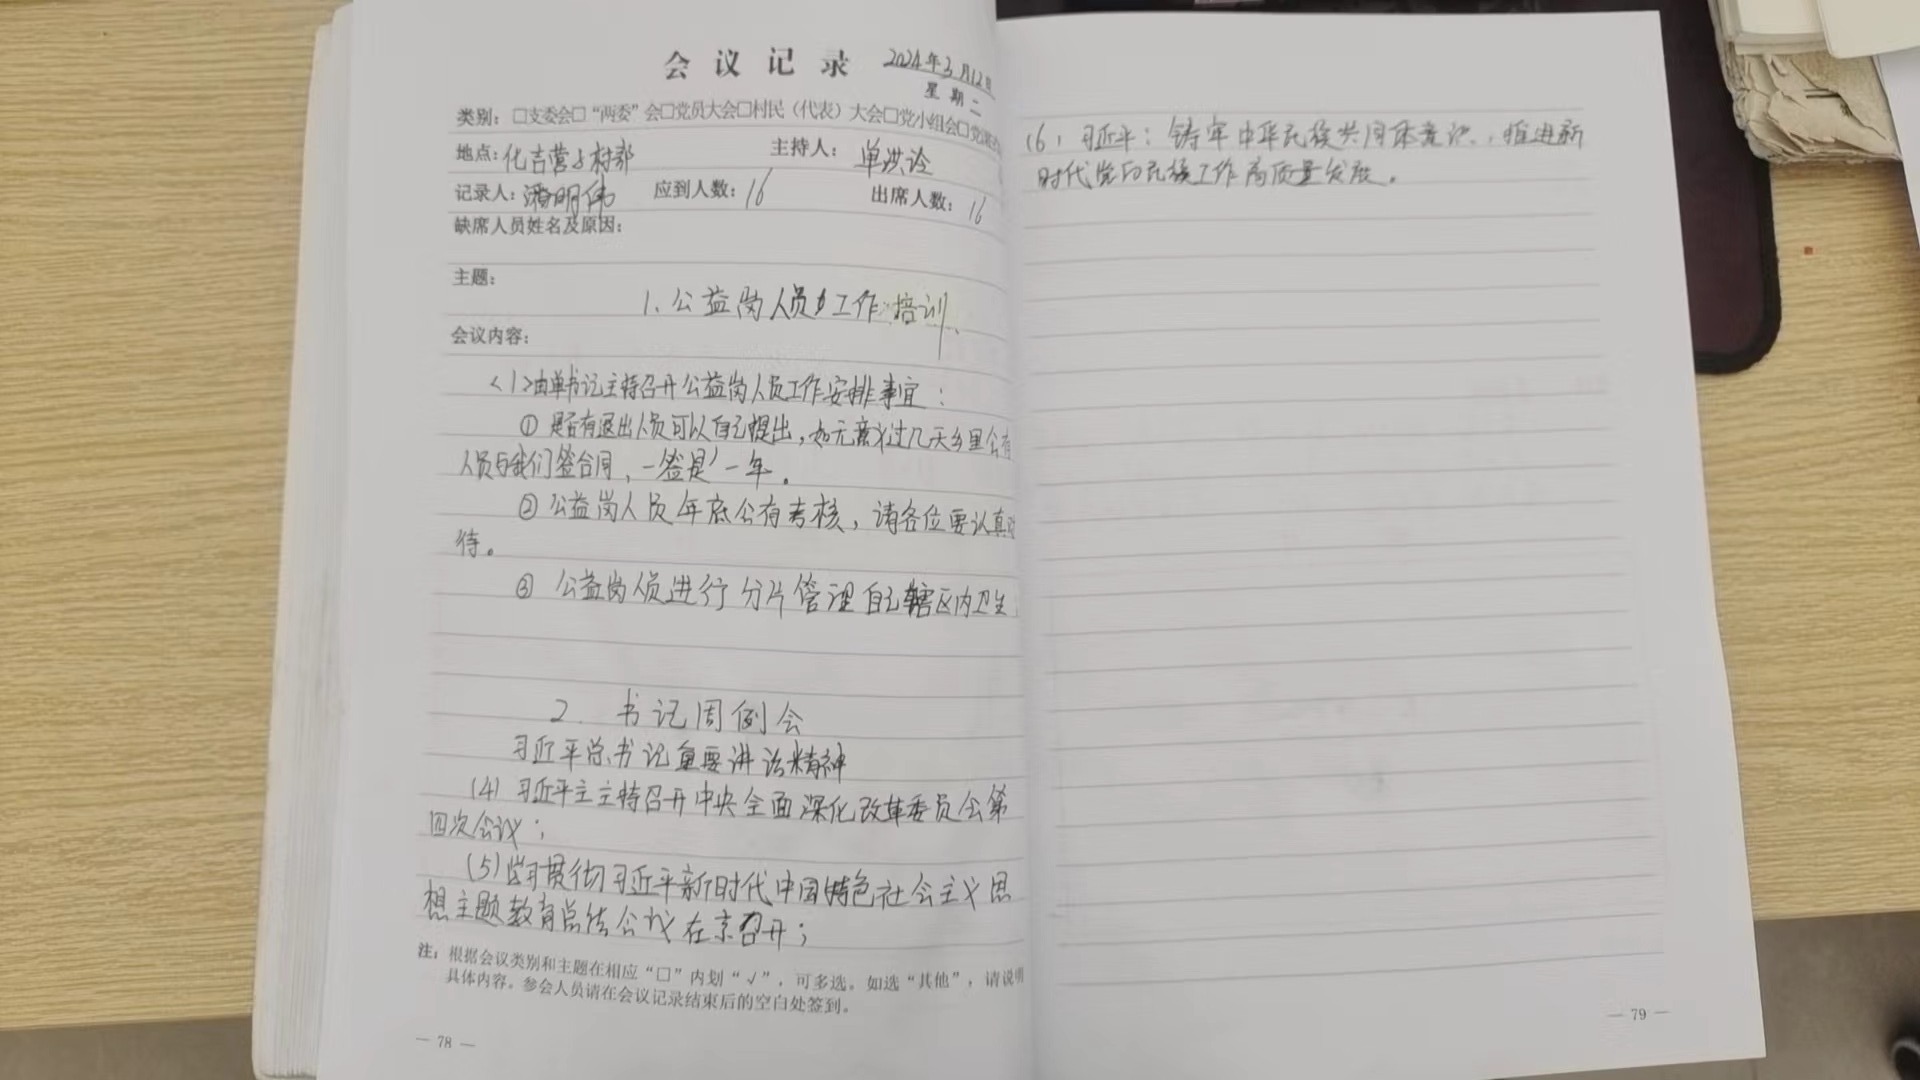 会议记录 2024年3月12日
星期二
类别：□支委会□“两委”会□党员大会□村民（代表）大会□党小组会□党
地点：化吉营子村部 主持人：单洪玲
记录人：潘明伟 应到人数：16 出席人数：16
缺席人员姓名及原因：
主题：
1、公益岗人员工作培训、
会议内容：
<1>由单书记主持召开公益岗人员工作安排事宜：
① 是否有退出人员可以自己提出，如无意义过几天乡里会有
人员与我们签合同，一签是一年。
② 公益岗人员年底会有考核，请各位要认真对
待。
③ 公益岗人员进行分片管理自己辖区内卫生
2. 书记周例会
习近平总书记重要讲话精神
(4) 习近平主主持召开中央全面深化改革委员会第
四次会议；
(5) 学习贯彻习近平新时代中国特色社会主义思
想主题教育总结会议在京召开；
注：根据会议类别和主题在相应“□”内划“√”，可多选。如选“其他”，请说明
具体内容。参会人员请在会议记录结束后的空白处签到。
— 78 —
(6) 习近平：铸牢中华民族共同体意识，推进新
时代党的民族工作高质量发展。
— 79 —